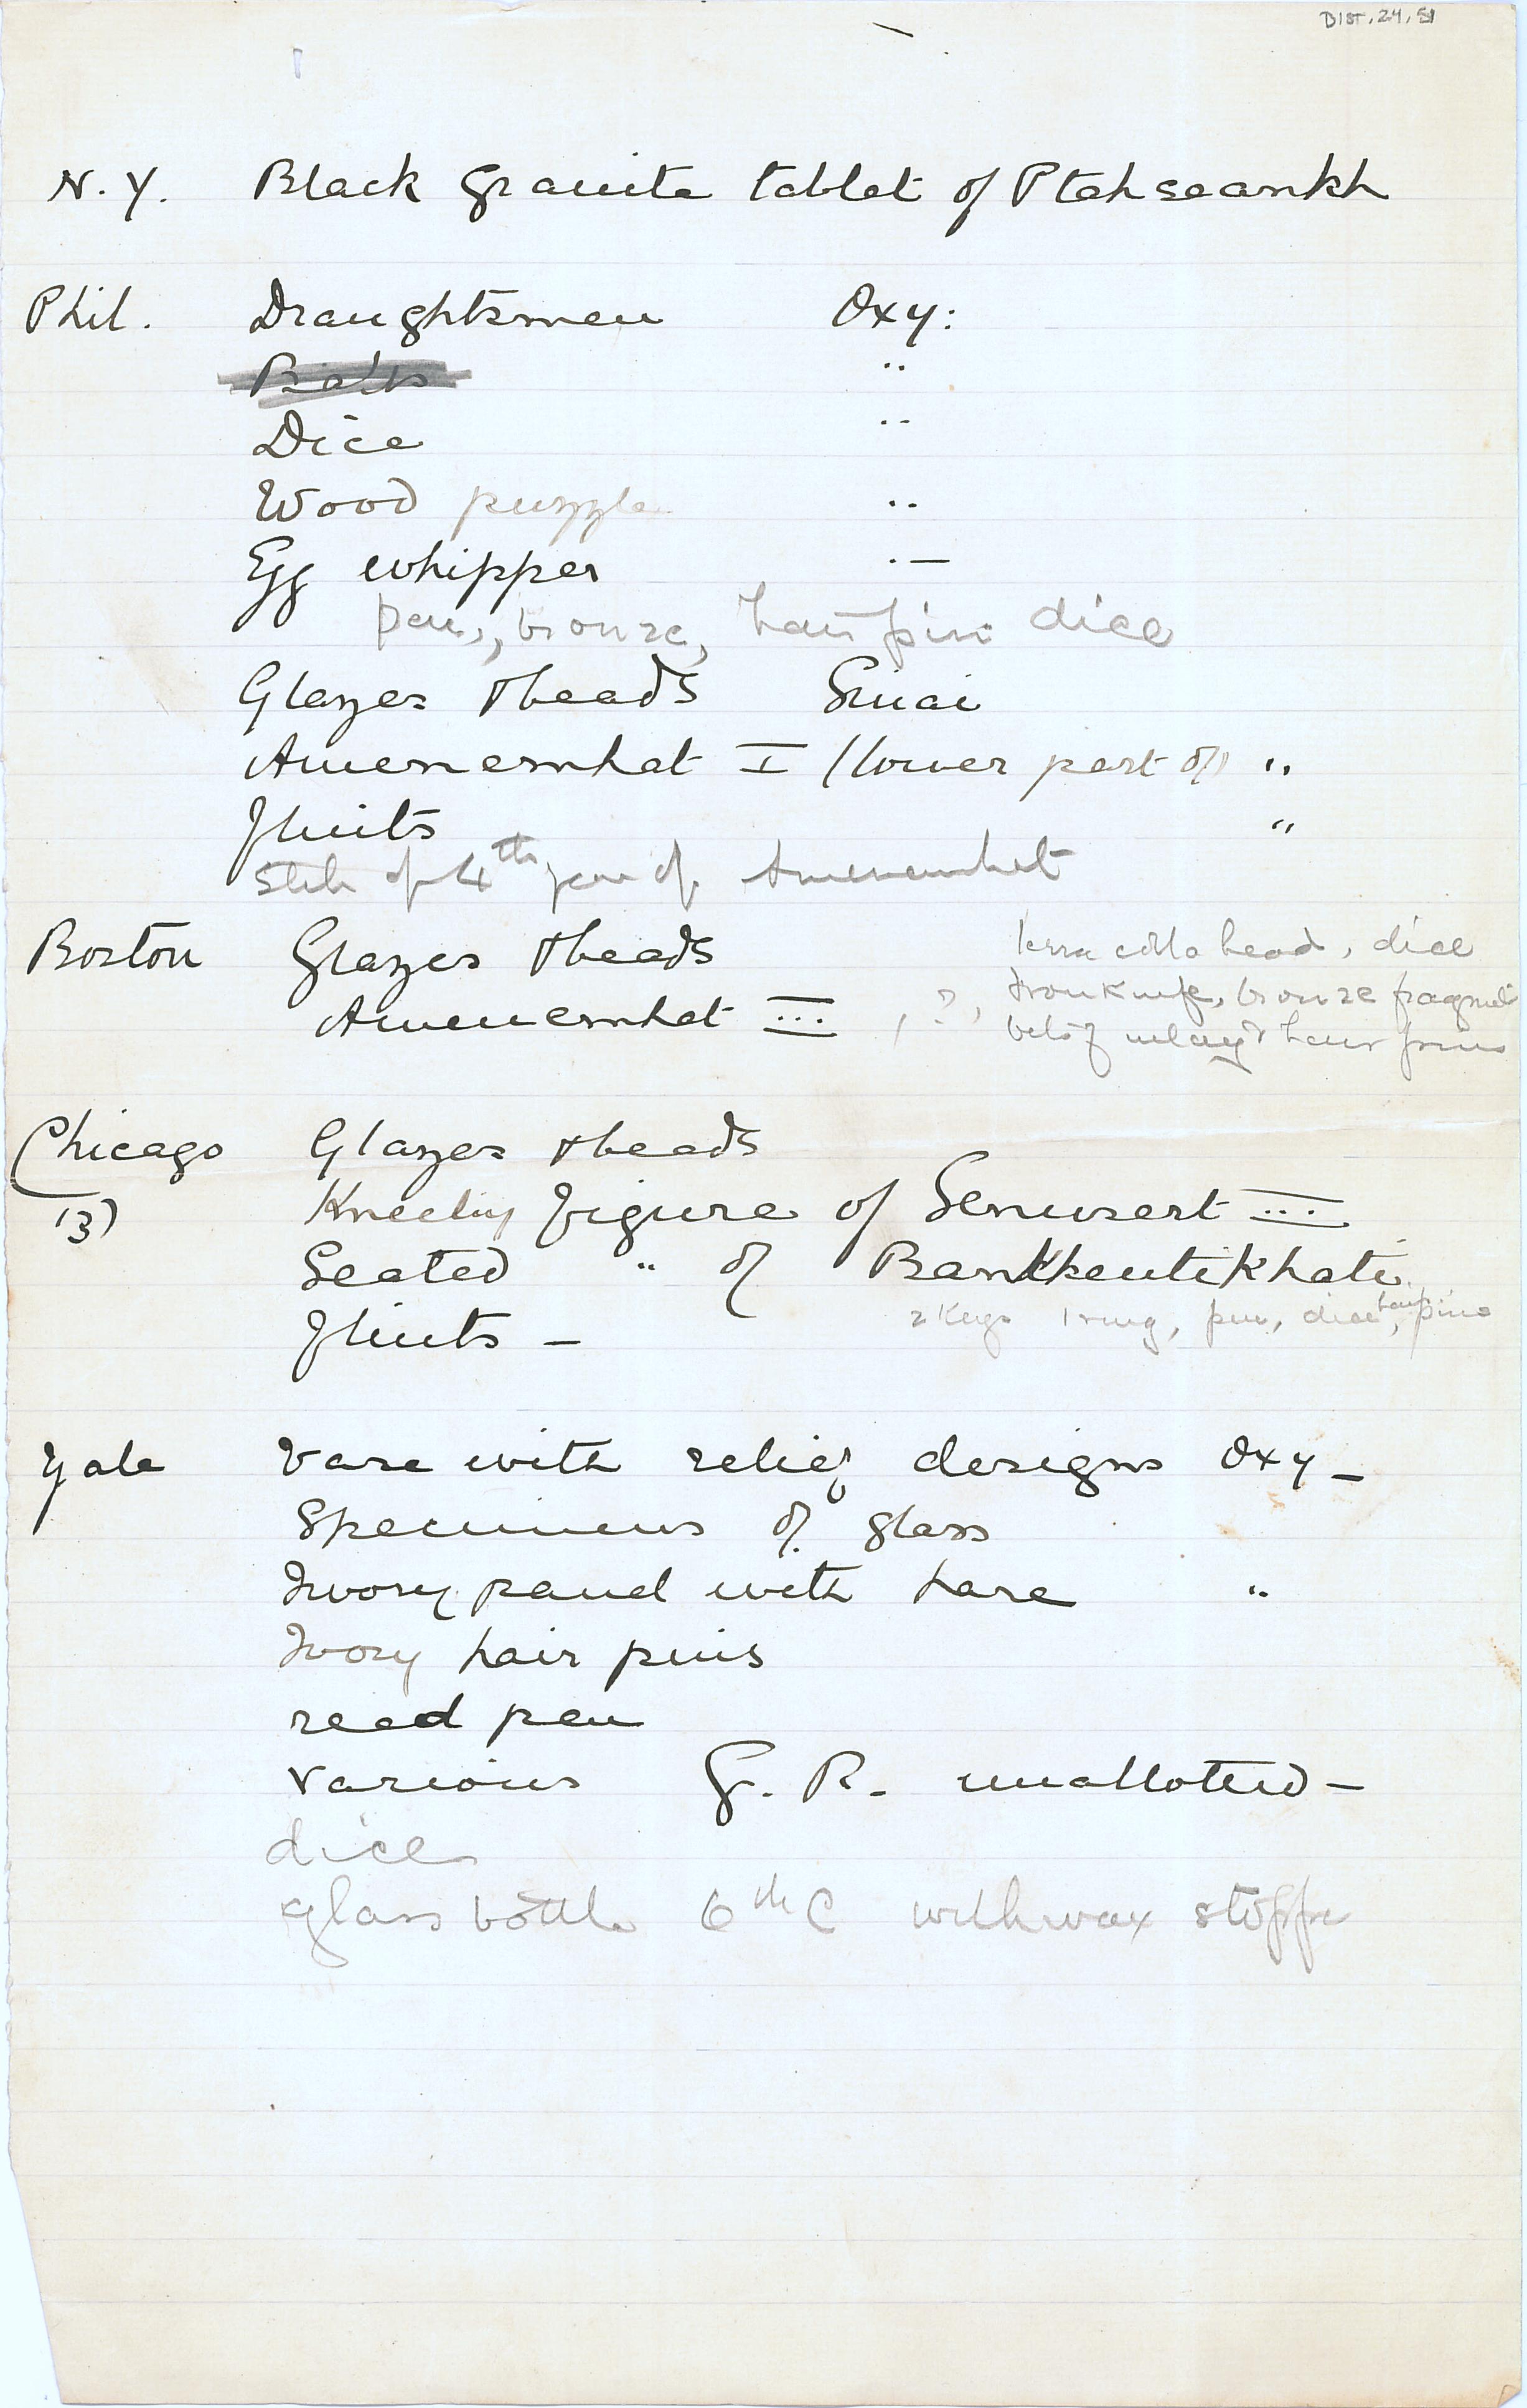 DIST. 24. 51
N. Y. Black granite tablet of Ptahseankh
Phil. Draughtsmen Oxy:
"
Dice "
Wood puzzle "
Egg whipper " —
pen, bronze, hair pin dice
Glazes & beads Sinai
Amenemhat I (lower part of) "
Flints "
Stele of 4th year of Amenemhat
Boston Glazes & beads terra cotta head, dice
Amenemhat III , ?, Iron Knife, bronze fragment
bits of inlay & hair pins
Chicago Glazes & beads
(3) Kneeling figure of Senusert III
Seated " of Bankhentikhati
Flints — 2 Keys 1 ring, pen, dice, hair pins
Yale Vase with relief designs Oxy —
Specimens of glass
Ivory panel with hare "
Ivory hair pins
reed pen
various G. R. unallotted —
dice
glass bottle 6th C with wax stopper